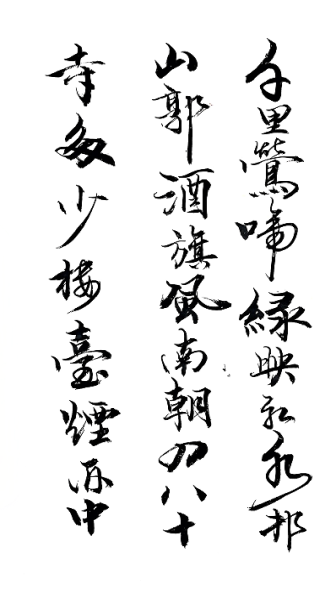 千里鶯啼緑映紅水邨
山郭酒旗風南朝四八十
寺多少樓臺煙雨中